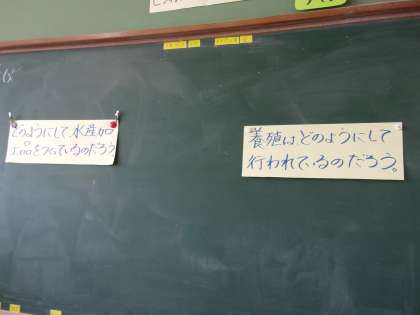 どのようにして、水産加
工品をつくっているのだろう
養殖は、どのようにして
行われているのだろう。